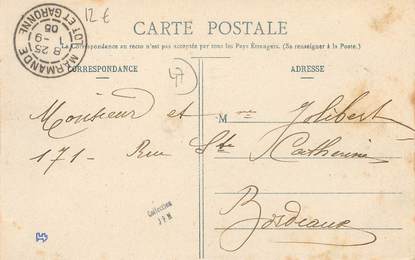 12 €
CARTE POSTALE
La Correspondance au recto n'est pas acceptée par tous les Pays Étrangers. (Se renseigner à la Poste.)
MARMANDE
LOT ET GARONNE
8 25
1 -9
05
CORRESPONDANCE
ADRESSE
47
Monsieur et Mme Jolibert
171 - Rue Ste Catherine
Bordeaux
Collection
J P M